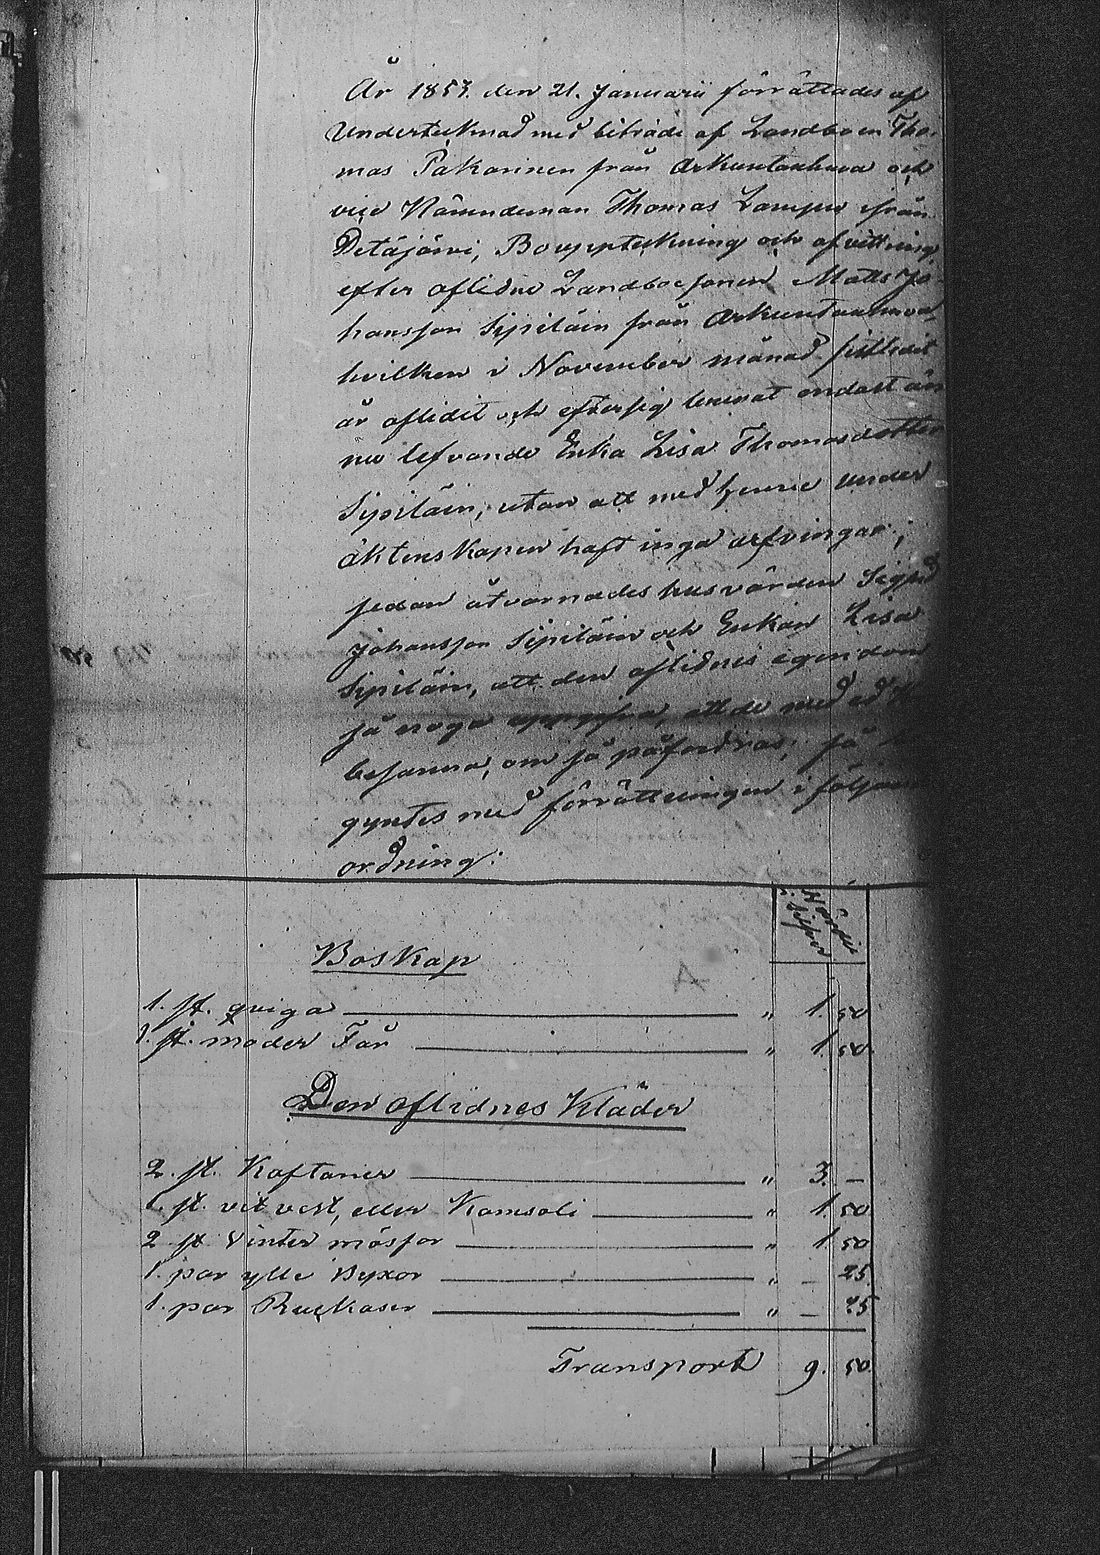 År 1857. den 21. Januarii förrättades af
Undertecknad med biträde af Landboen Tho-
mas Pakarinen från Arkuntanhuva och
vice Nämndeman Thomas Lampu från
Petäjärvi, Bouppteckning och afvittring
efter aflidne Landboesonen Matts Jo-
hansson Sipiläin från Arkuntanhuva
hvilken i November månad sistledit
år aflidit och eftersig lemnat endast än
nu lefvande Enka Lisa Thomasdotter
Sipiläin, utan att med henne under
äktenskapen haft inga arfvingar;
sedan åtvarnades husvärden Sigfrid
Johansson Sipiläin och Enkan Lisa
Sipiläin, att den aflidnes egendom
så noga uppgifva, att de med ed
besanna, om så påfordras, så
gyntes med förrättningen i följande
ordning:
Värde
i Silfver
Boskap
1. st. qviga " 1. 50
1. st. moder Får " 1. 50.
Den aflidnes Kläder
2. st. Kaftaner " 3. –
1. st. vit vest, eller Kamsoli " 1. 50
2. st Vinter mössor " 1. 50
1. par ylle Byxor " – 25.
1. par " – 25
Transport 9. 50